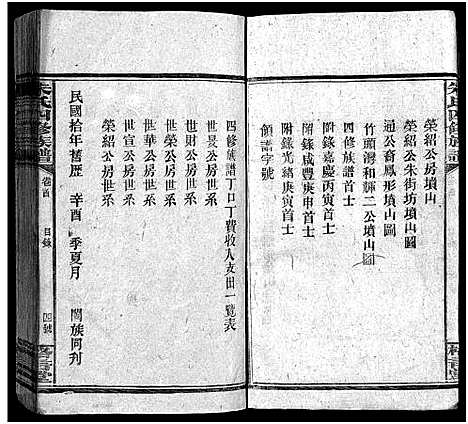 榮紹公房墳山
榮紹公朱街坊墳山圖
通公裔鳳形墳山圖
竹頭灣和輝二公墳山圖
四修族譜首士
附錄嘉慶丙寅首士
附錄咸豐庚申首士
附錄光緒庚寅首士
領譜字號
四修族譜丁口丁費收入支田一覽表
世晸公房世系
世財公房世系
世榮公房世系
世華公房世系
世宣公房世系
榮紹公房世系
民國拾年舊歷 辛酉 季夏月 闔族同刋
朱氏四修族譜 卷首 目錄 四號